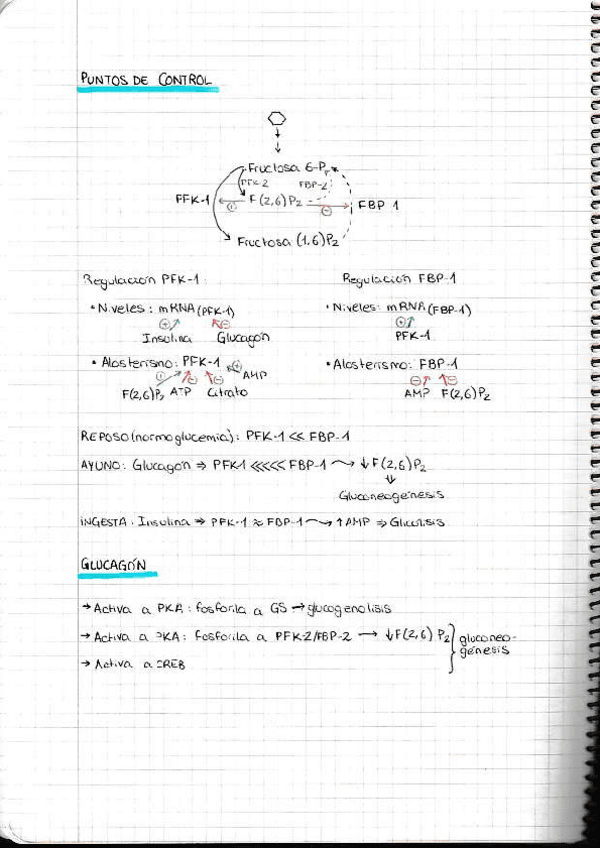 PUNTOS DE CONTROL
Fructosa 6-P
PFK-2 FBP-2
PFK-1 ⊕ F(2,6)P2 ⊖ FBP 1
Fructosa (1,6)P2
Regulación PFK-1 Regulación FBP-1
• Niveles: mRNA (PFK-1) • Niveles: mRNA (FBP-1)
⊕ ⊖ ⊕
Insulina Glucagón PFK-1
• Alosterismo: PFK-1 ⊕ AMP • Alosterismo: FBP-1
⊕ ⊖ ⊖ ⊖ ⊖
F(2,6)P2 ATP Citrato AMP F(2,6)P2
REPOSO (normoglucemia): PFK-1 << FBP-1
AYUNO: Glucagón ⇒ PFK1 <<<< FBP-1 → ↓F(2,6)P2
⇓
Gluconeogénesis
INGESTA: Insulina ⇒ PFK-1 ≈ FBP-1 → ↑AMP ⇒ Glucólisis
GLUCAGÓN
→ Activa a PKA: fosforila a GS → glucogenolisis
→ Activa a PKA: fosforila a PFK-2/FBP-2 → ↓F(2,6)P2 } gluconeo-
génesis
→ Activa a CREB